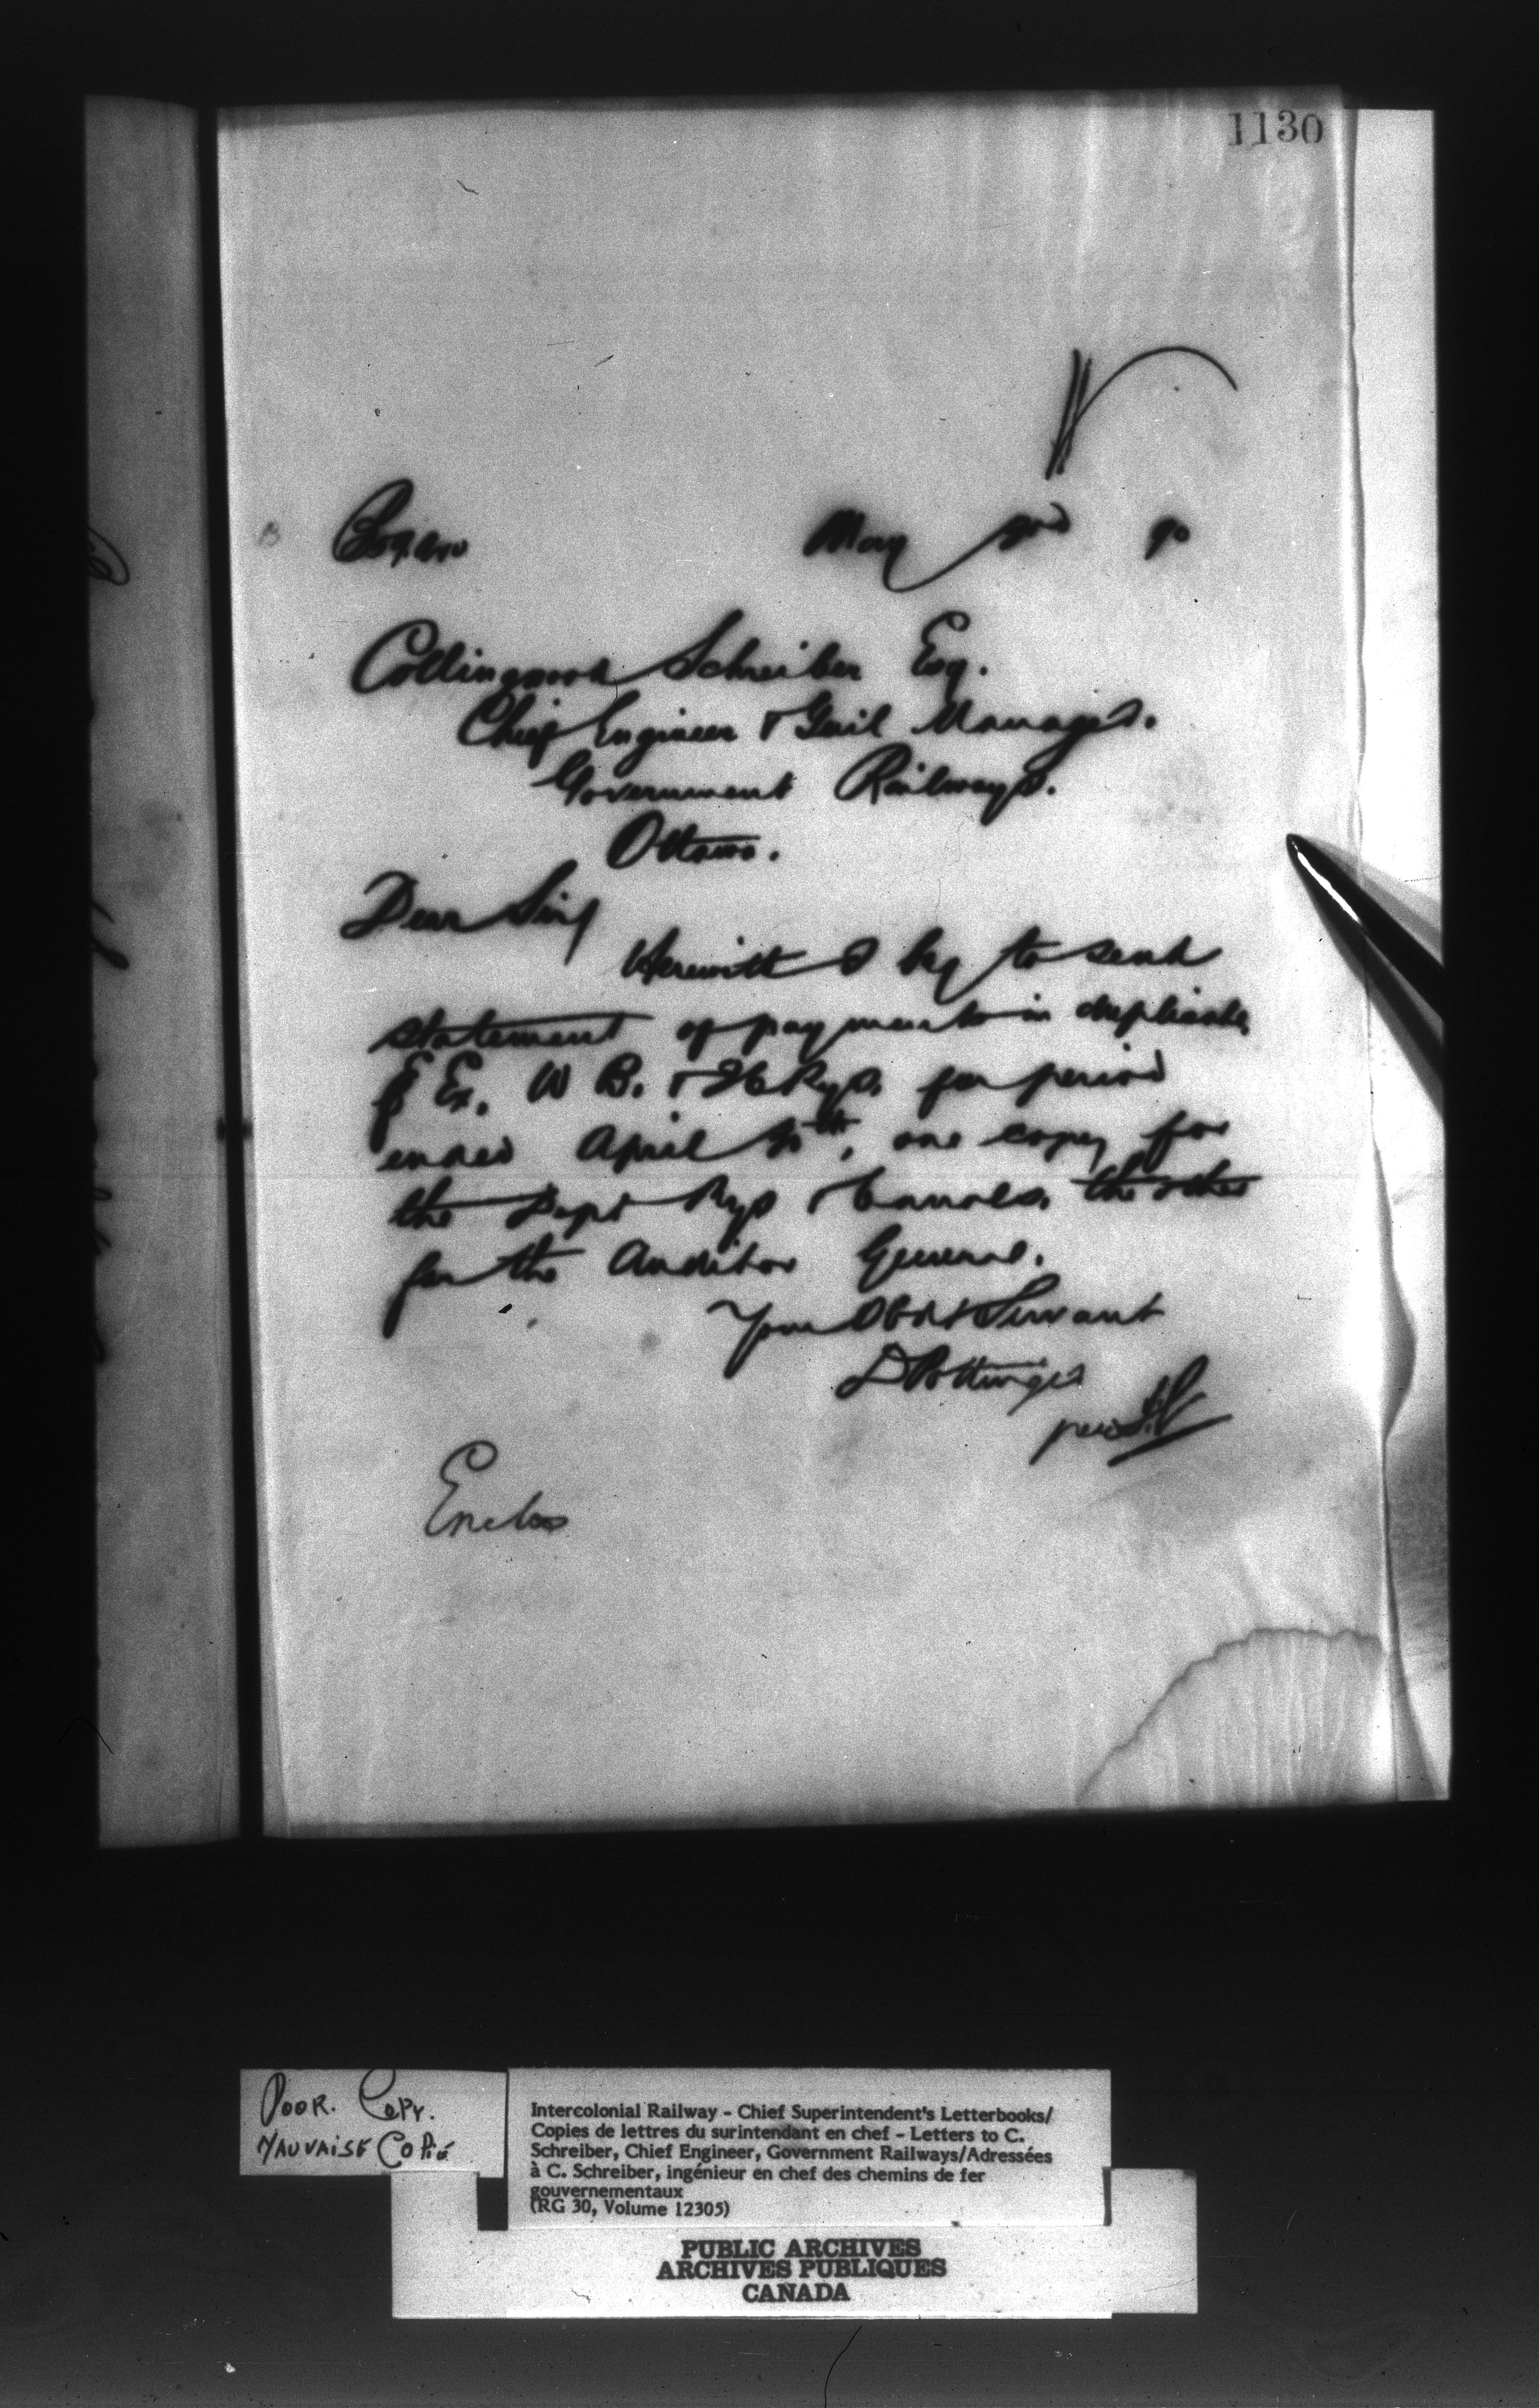 1130
May 90
Collingwood Schreiber Esq.
Chief Engineer & Genl Manager.
Government Railways.
Ottawa.
Dear Sir/
Herewith I beg to send
statement of payments in duplicate
Ex. W B. & Rys. for period
ended April 30th, one copy for
the Dept Rys & Canals. the other
for the Auditor General.
Your Obdt Servant
D Pottinger
per
Enclos
POOR. COPY.
MAUVAISE COPIE
Intercolonial Railway - Chief Superintendent's Letterbooks/
Copies de lettres du surintendant en chef - Letters to C.
Schreiber, Chief Engineer, Government Railways/Adressées
à C. Schreiber, ingénieur en chef des chemins de fer
gouvernementaux
(RG 30, Volume 12305)
PUBLIC ARCHIVES
ARCHIVES PUBLIQUES
CANADA